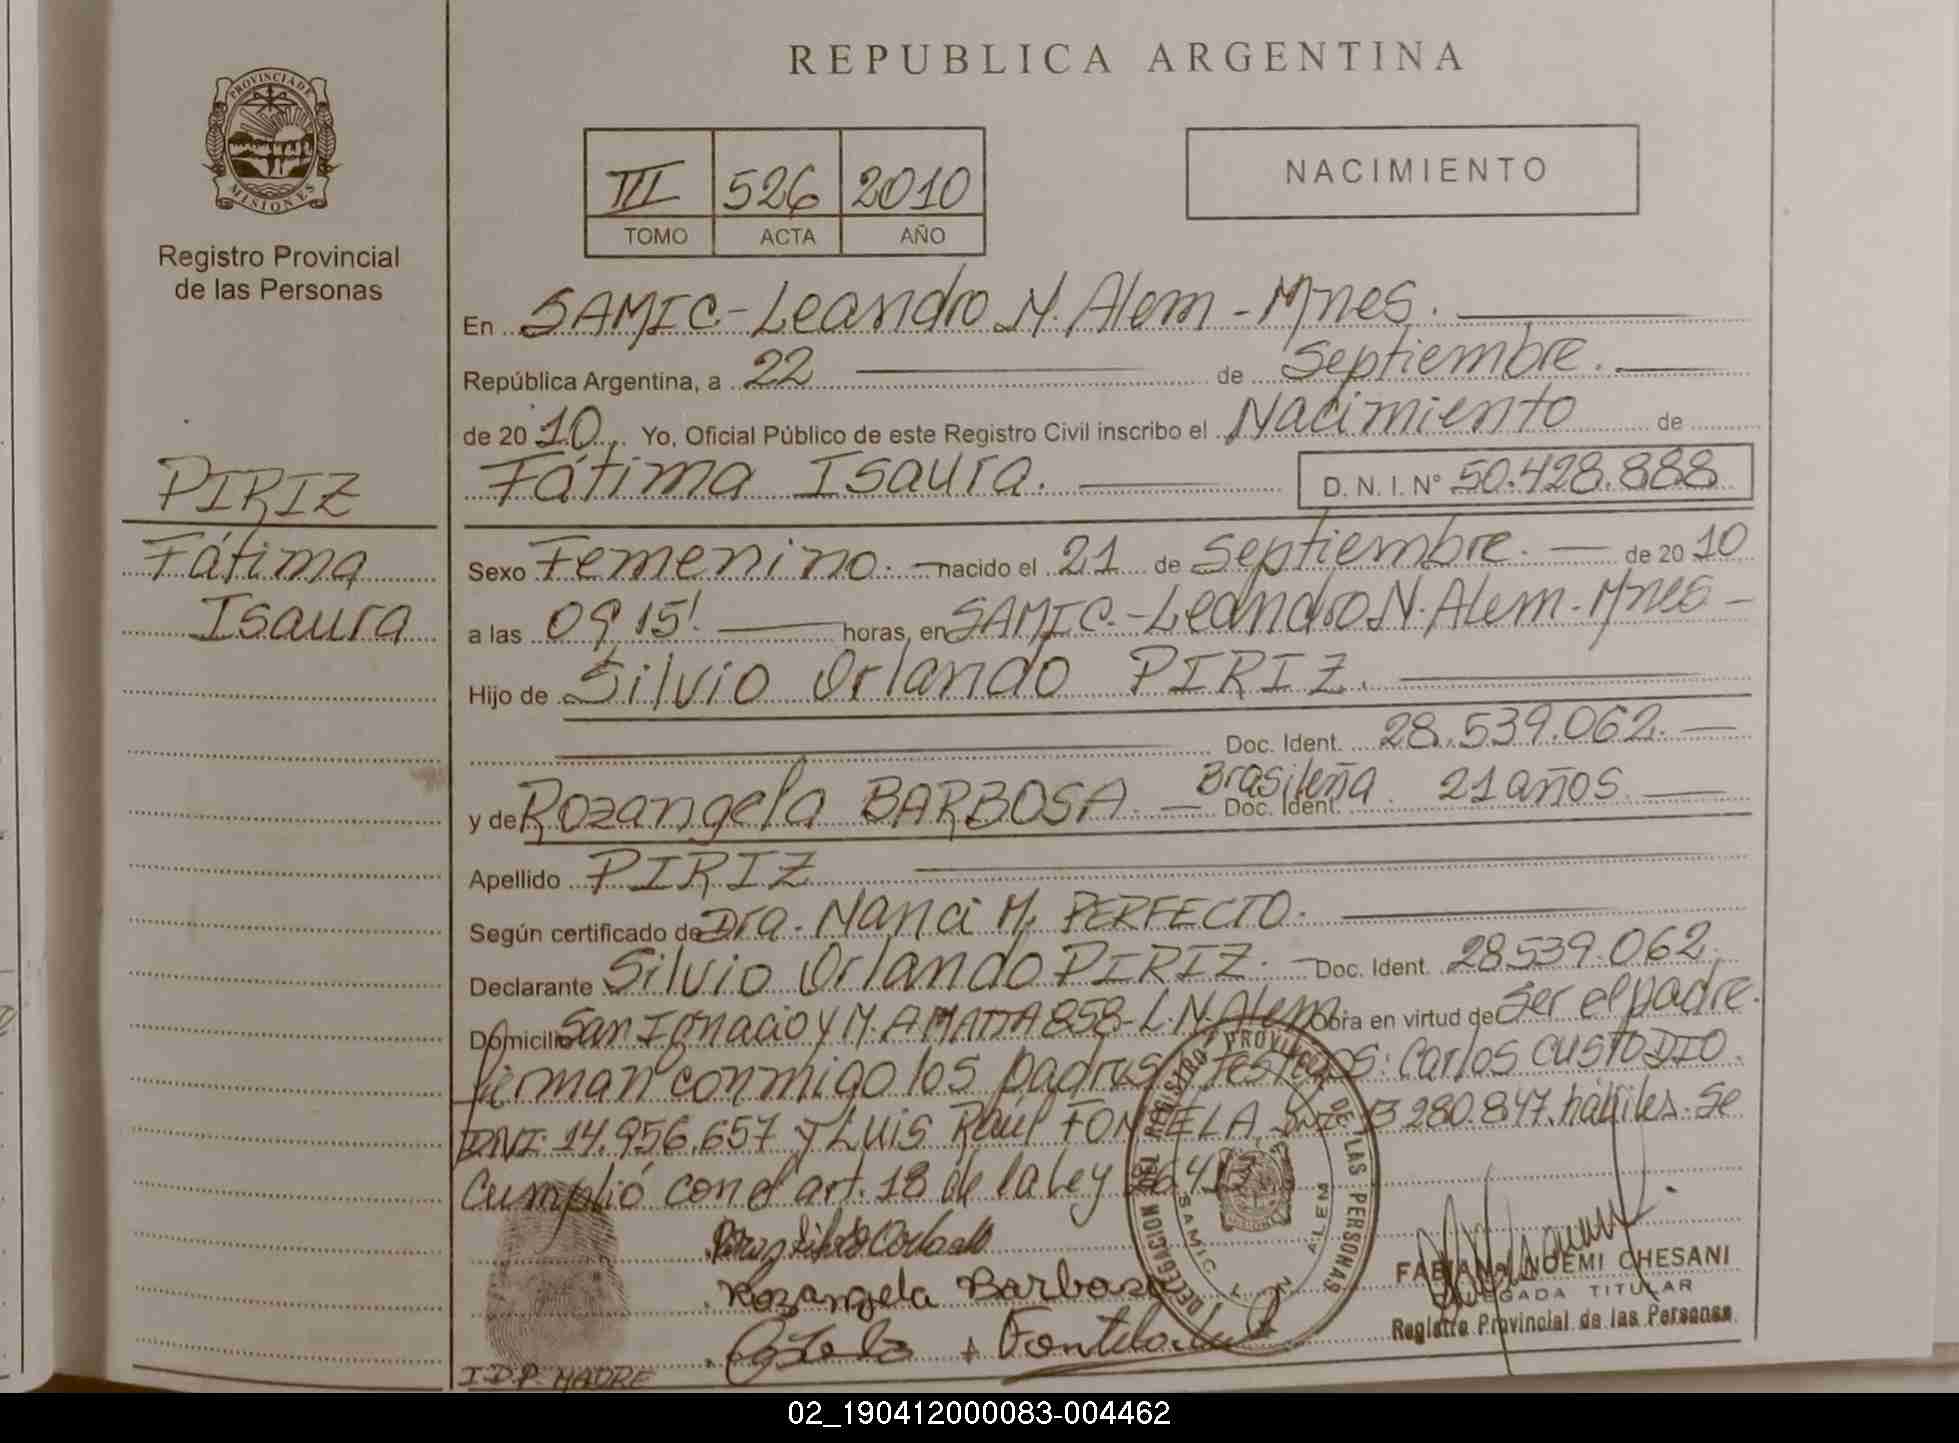 PROVINCIA DE
MISIONES
Registro Provincial
de las Personas
PIRIZ
Fátima
Isaura
REPUBLICA ARGENTINA
III 526 2010
TOMO ACTA AÑO
NACIMIENTO
En SAMIC-Leandro N. Alem - Mnes.
República Argentina, a 22 de Septiembre.
de 20 10 Yo, Oficial Público de este Registro Civil inscribo el Nacimiento de
Fátima Isaura. D. N. I. N° 50.428.888
Sexo Femenino. nacido el 21 de Septiembre. de 20 10
a las 09 15' horas, en SAMIC.-Leandro N. Alem. Mnes
Hijo de Silvio Orlando PIRIZ.
Doc. Ident. 28.539.062.
y de Rozangela BARBOSA. Doc. Ident. Brasileña 21 años.
Apellido PIRIZ
Según certificado de Dra. Nanci M. PERFECTO.
Declarante Silvio Orlando PIRIZ. Doc. Ident. 28.539.062.
Domicilio San Ignacio y M. A MATTA 858-L.N.Alem. Obra en virtud de Ser el padre.
Firman conmigo los padres y Testigos: Carlos CUSTODIO.
DNI: 14.956.657 y Luis Raúl FONTELA, 280.847. hábiles. Se
Cumplió con el art. 18 de la Ley
DELEGACION DEL REGISTRO PROVINCIAL DE LAS PERSONAS
SAMIC L. N. ALEM
Rozangela Barbosa
FABIANA NOEMI CHESANI
DELEGADA TITULAR
Registro Provincial de las Personas
I.D.P. MADRE
02_190412000083-004462